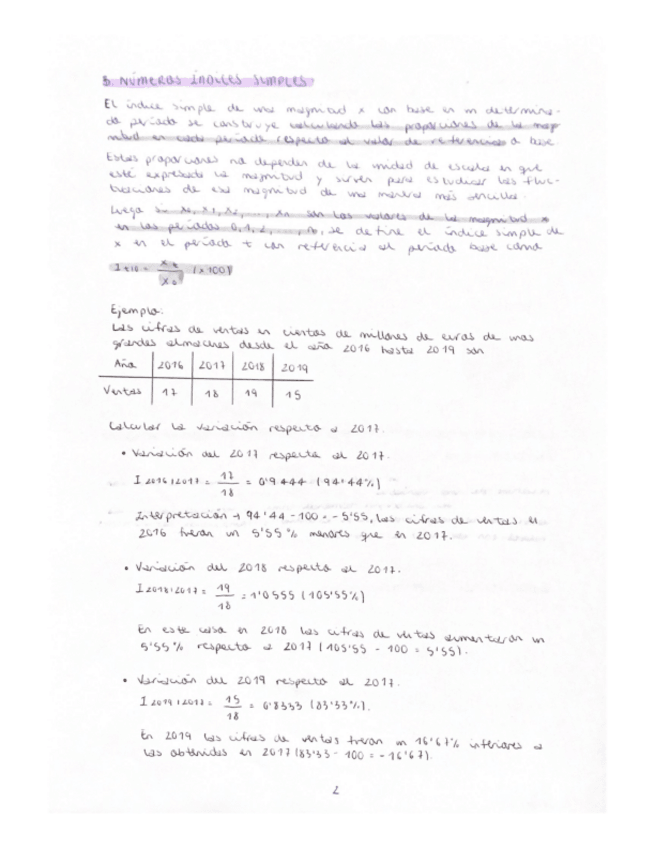 3. NÚMEROS ÍNDICES SIMPLES
El índice simple de una magnitud x con base en m determina-
do período se construye calculando las proporciones de la mag
nitud en cada período respecto al valor de referencia o base
Estas proporciones no dependen de la unidad de escala en que
esté expresada la magnitud y sirven para estudiar las fluc-
tuaciones de esa magnitud de una manera más sencilla.
Luego si x0, x1, x2, ..., xn son los valores de la magnitud x
en los períodos 0, 1, 2, ..., n, se define el índice simple de
x en el período t con referencia al período base como
I t|0 = xt / x0 (x100)
Ejemplo:
Las cifras de ventas en cientos de millones de euros de unos
grandes almacenes desde el año 2016 hasta 2019 son
Año 2016 2017 2018 2019
Ventas 17 18 19 15
Calcular la variación respecto a 2017.
• Variación del 2017 respecto al 2017.
I 2016|2017 = 17/18 = 0'9444 (94'44%)
Interpretación → 94'44 - 100 = -5'55, las cifras de ventas en
2016 fueron un 5'55% menores que en 2017.
• Variación del 2018 respecto al 2017.
I 2018|2017 = 19/18 = 1'0555 (105'55%)
En este caso en 2018 las cifras de ventas aumentaron un
5'55% respecto a 2017 (105'55 - 100 = 5'55).
• Variación del 2019 respecto al 2017.
I 2019|2017 = 15/18 = 0'8333 (83'33%).
En 2019 las cifras de ventas fueron un 16'67% inferiores a
las obtenidas en 2017 (83'33 - 100 = -16'67).
2